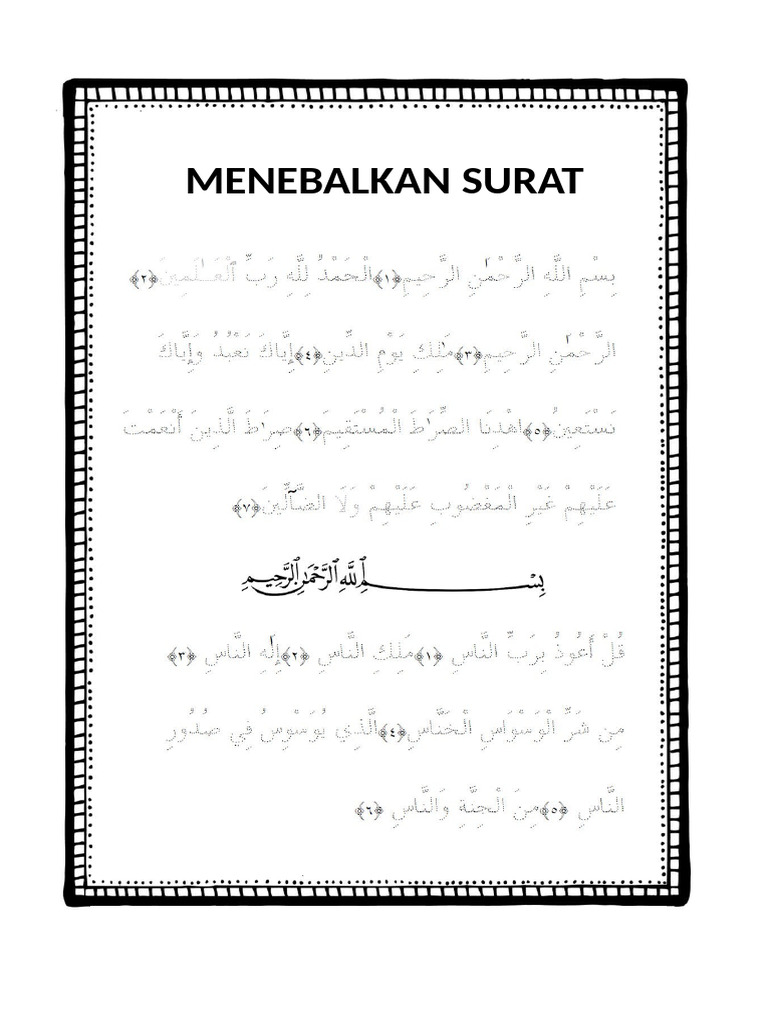 MENEBALKAN SURAT
بِسْمِ اللَّهِ الرَّحْمَٰنِ الرَّحِيمِ﴿١﴾الْحَمْدُ لِلَّهِ رَبِّ ٱلْعَـٰلَمِينَ﴿٢﴾
الرَّحْمَٰنِ الرَّحِيمِ﴿٣﴾مَٰلِكِ يَوْمِ الدِّينِ﴿٤﴾إِيَّاكَ نَعْبُدُ وَإِيَّاكَ
نَسْتَعِينُ﴿٥﴾اهْدِنَا الصِّرَٰطَ الْمُسْتَقِيمَ﴿٦﴾صِرَٰطَ الَّذِينَ أَنْعَمْتَ
عَلَيْهِمْ غَيْرِ الْمَغْضُوبِ عَلَيْهِمْ وَلَا الضَّآلِّينَ﴿٧﴾
بِسْمِ ٱللَّهِ ٱلرَّحْمَٰنِ ٱلرَّحِيمِ
قُلْ أَعُوذُ بِرَبِّ النَّاسِ ﴿١﴾مَلِكِ النَّاسِ ﴿٢﴾إِلَٰهِ النَّاسِ ﴿٣﴾
مِن شَرِّ الْوَسْوَاسِ الْخَنَّاسِ﴿٤﴾الَّذِي يُوَسْوِسُ فِي صُدُورِ
النَّاسِ ﴿٥﴾مِنَ الْجِنَّةِ وَالنَّاسِ ﴿٦﴾